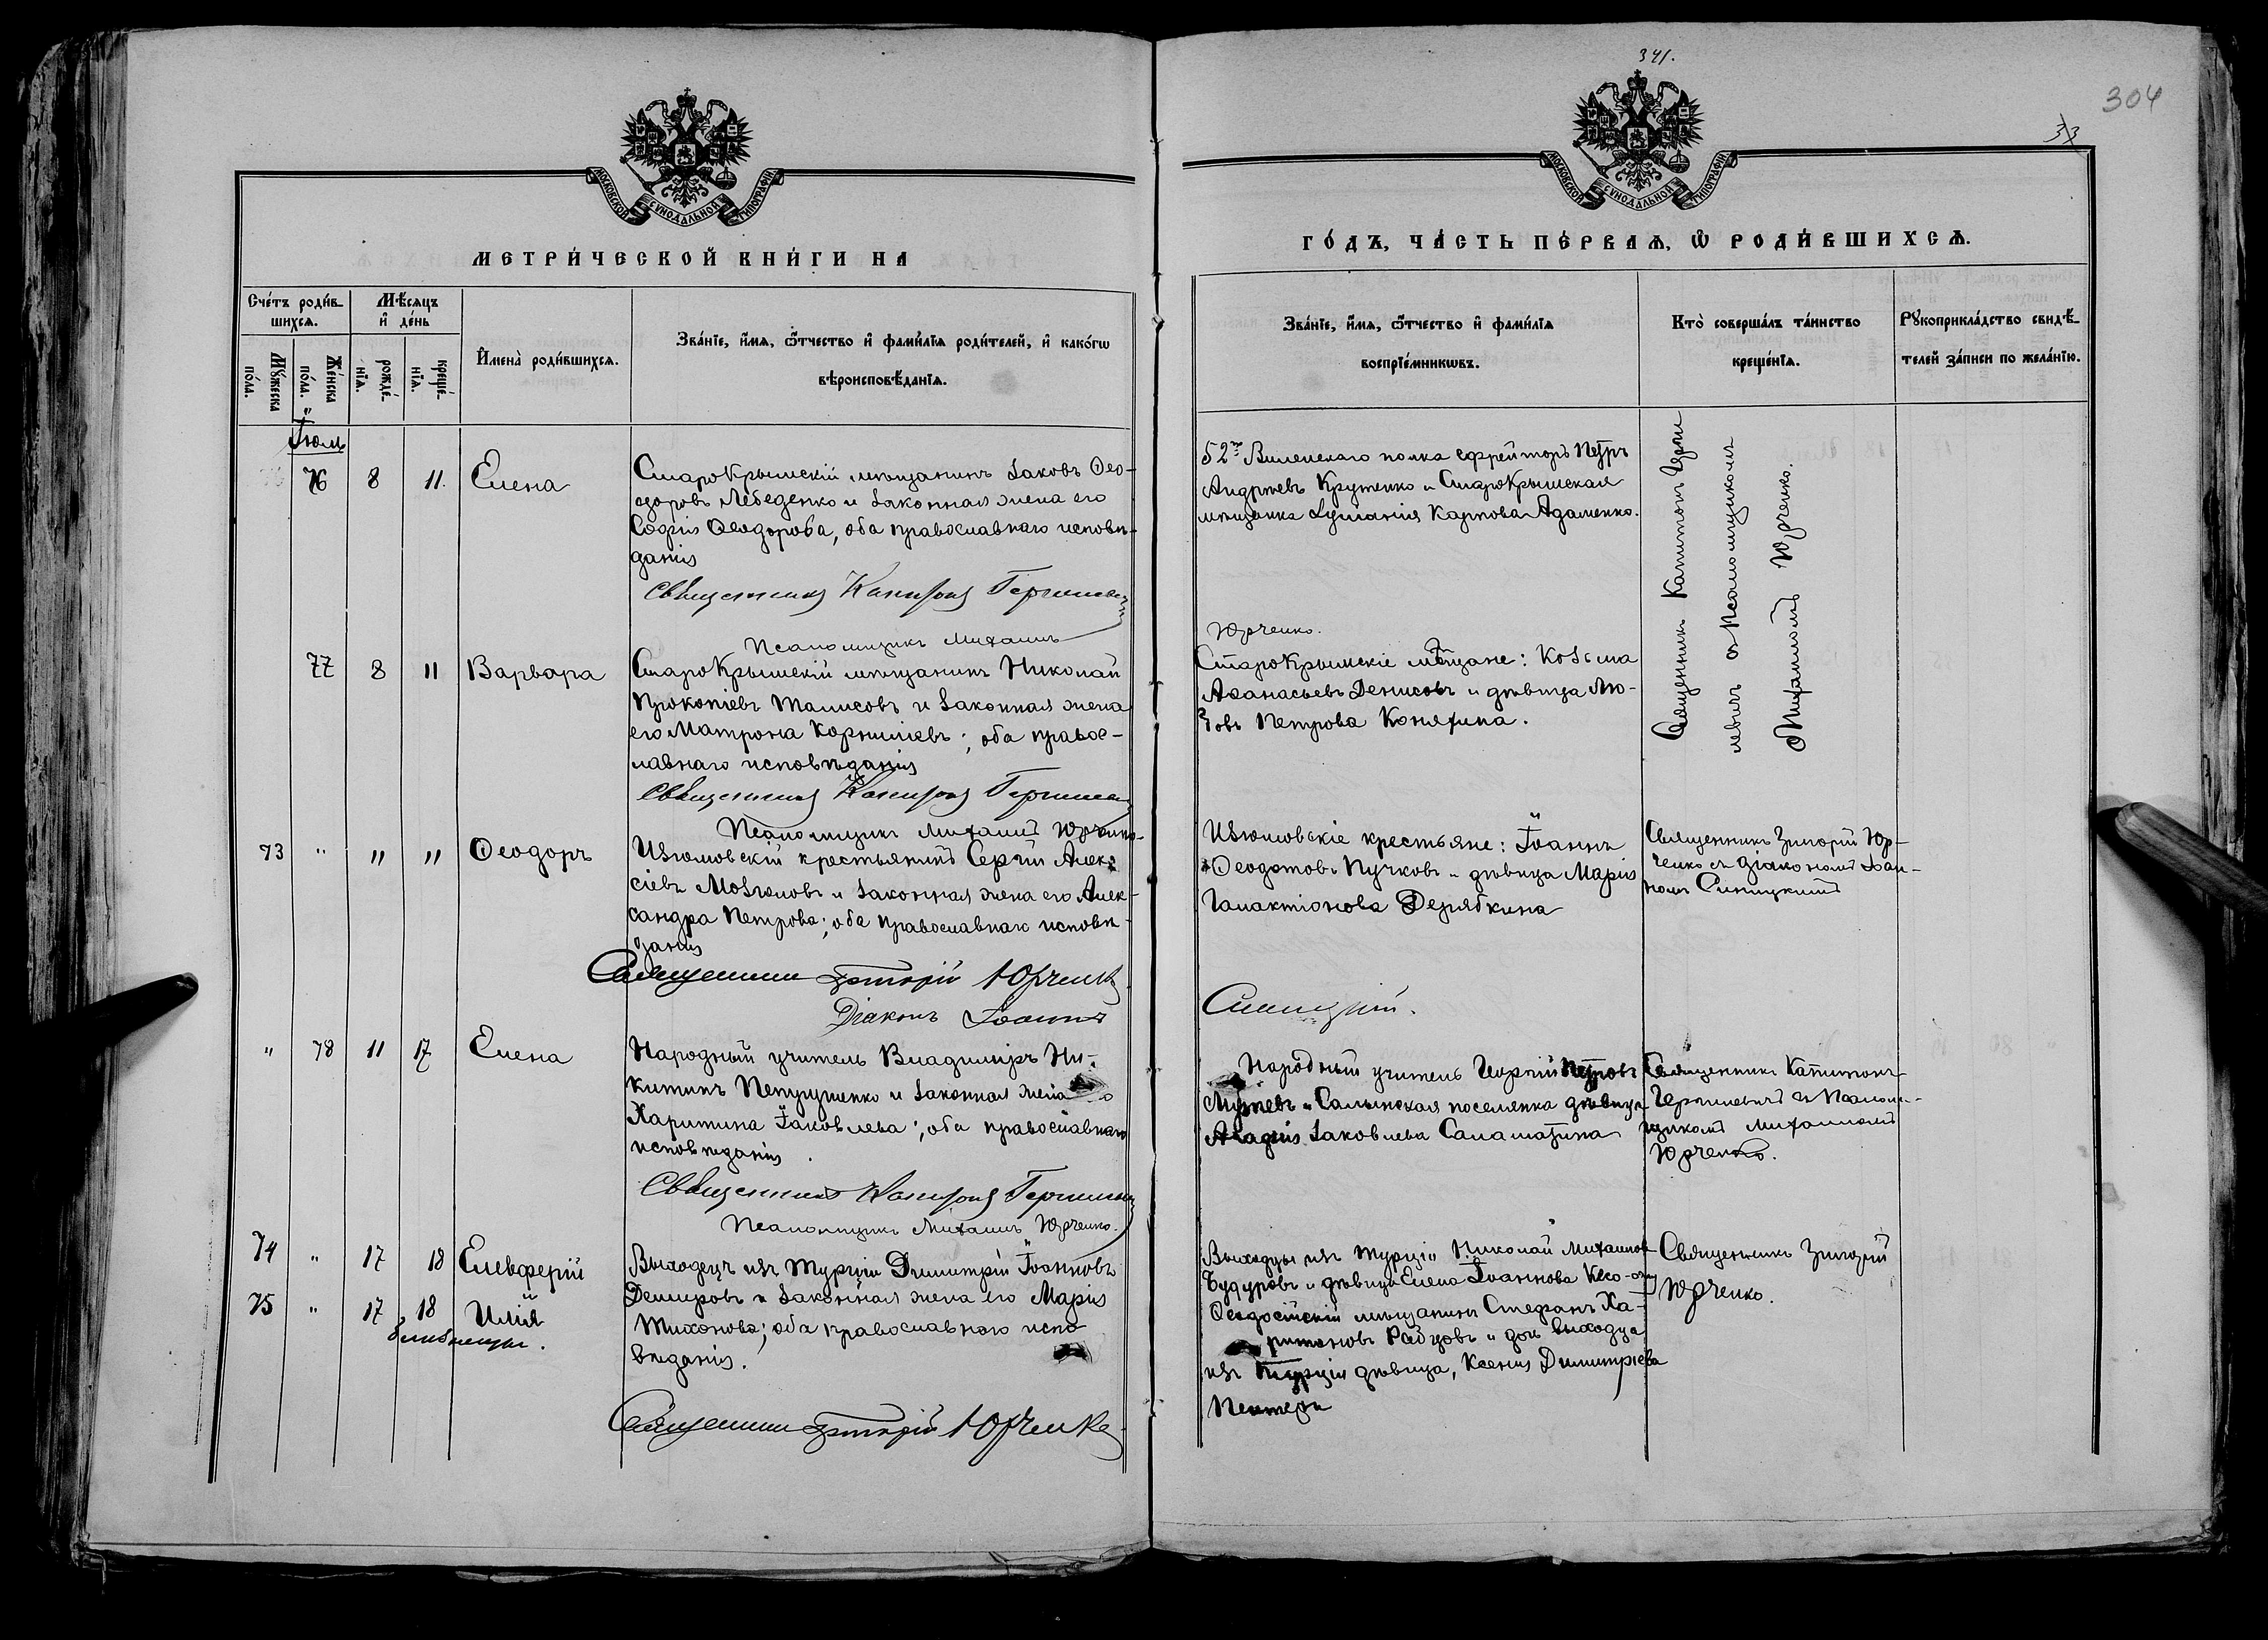 341.
304
33
МОСКОВСКОЙ СУНОДАЛЬНОЙ ТИПОГРАФІИ.
МОСКОВСКОЙ СУНОДАЛЬНОЙ ТИПОГРАФІИ.
МЕТРИ́ЧЕСКОЙ КНИ́ГИ НА
ГО́ДЪ, ЧА́СТЬ ПЕ́РВАѦ, Ѡ҆ РОДИ́ВШИХСѦ.
Сче́тъ роди́в-
шихсѧ.
Мꙋ́жеска
по́ла.
Же́нска
по́ла.
Мѣ́сѧцъ
и҆ де́нь
рожде́-
нїѧ.
креще́-
нїѧ.
И҆мена̀ роди́вшихсѧ.
Зва́нїе, и҆́мѧ, ѻ҆́тчество и҆ фами́лїѧ роди́телей, и҆ како́гѡ
вѣроисповѣ́данїѧ.
Зва́нїе, и҆́мѧ, ѻ҆́тчество и҆ фами́лїѧ
воспрїе́мникѡвъ.
Кто̀ соверша́лъ та́инство
креще́нїѧ.
Рꙋкоприкла́дство свидѣ́-
телей за́писи по жела́нїю.
Іюль
76 8 11. Елена
Старокрымскій мѣщанинъ Іаковъ Ѳео-
доровъ Лебеденко и законная жена его
Софія Ѳеодорова, оба православнаго исповѣ-
данія
Священникъ Капитонъ Гергилевич
Псаломщикъ Михаилъ
52го Виленскаго полка ефрейторъ Петръ
Андреевъ Крутенко и Старокрымская
мѣщанка Іуліанія Карпова Адаменко.
Юрченко.
Священникъ Капитонъ Герги
левичъ съ Псаломщикомъ
Михаиломъ Юрченко.
77 8 11 Варвара
Старокрымскій мѣщанинъ Николай
Прокопіевъ Талисовъ и законная жена
его Матрона Корниліевъ; оба правос-
лавнаго исповѣданія
Священникъ Капитонъ Гергилевич
Псаломщикъ Михаилъ Юрченко
Старокрымскіе мѣщане: Козьма
Аѳанасьевъ Денисовъ и дѣвица Лю-
бовь Петрова Коняхина.
73 " " " Ѳеодоръ
Изюмовскій крестьянинъ Сергій Алек-
сіевъ Мозголовъ и законная жена его Алек-
сандра Петрова; оба православнаго исповѣ-
данія
Священникъ Григорій Юрченко
Діаконъ Іоаннъ
Изюмовскіе крестьяне: Іоаннъ
Ѳеодотовъ Пучковъ и дѣвица Марія
Галактіонова Дерябкина
Синицкій.
Священникъ Григорій Юр-
ченко съ діакономъ Іоан-
номъ Синицкимъ
" 78 11 17 Елена
Народный учитель Владиміръ Ни-
китинъ Петрушенко и законная жена
Харитина Іаковлева; оба православнаго
исповѣданія.
Священникъ Капитонъ Гергилевич
Псаломщикъ Михаилъ Юрченко.
Народный учитель Георгій Петровъ
и Салынская поселянка дѣвица
Іаковлева Саламатина
Священникъ Капитонъ
Гергилевичъ съ Псалом-
щикомъ Михаиломъ
Юрченко.
74 " 17 18 Елевферій
75 " 17 18 Илія
близнецы.
Выходецъ изъ Турціи Димитрій Іоанновъ
Демировъ и законная жена его Марія
Тихонова; оба православнаго испо
вѣданія.
Священникъ Григорій Юрченко
Выходцы изъ Турціи Николай Михаиловъ
Будуровъ и дѣвица Елена Іоаннова
Ѳеодосійскій мѣщанинъ Стефанъ Ха-
ритоновъ Рабцовъ и дочь выходца
изъ Турціи дѣвица, Ксенія Димитріева
Священникъ Григорій
Юрченко.